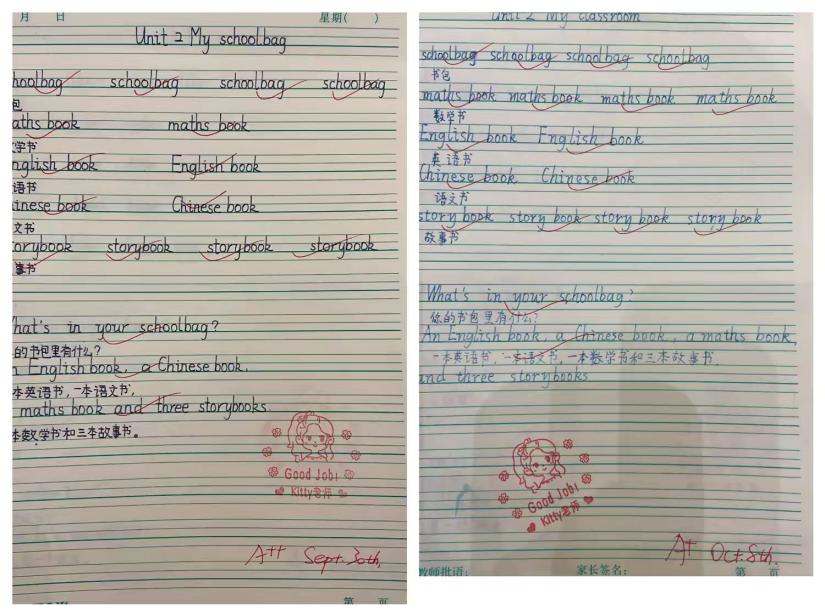 月 日 星期( )
Unit 2 My schoolbag
hoolbag schoolbag schoolbag schoolbag
包
aths book maths book
学书
nglish book English book
语书
inese book Chinese book
文书
orybook storybook storybook storybook
事书
hat's in your schoolbag?
的书包里有什么?
n English book, a Chinese book,
本英语书,一本语文书,
maths book and three storybooks.
本数学书和三本故事书。
Good Job!
Kitty老师
A++ Sept. 30th.
第 页
Unit 2 My classroom
schoolbag schoolbag schoolbag schoolbag
书包
maths book maths book maths book maths book
数学书
English book English book
英语书
Chinese book Chinese book
语文书
story book story book story book story book
故事书
What's in your schoolbag?
你的书包里有什么?
An English book, a Chinese book, a maths book,
一本英语书,一本语文书,一本数学书和三本故事书.
and three storybooks
Good Job!
Kitty老师
A+ Oct. 8th.
教师批语: 家长签名: 第 页